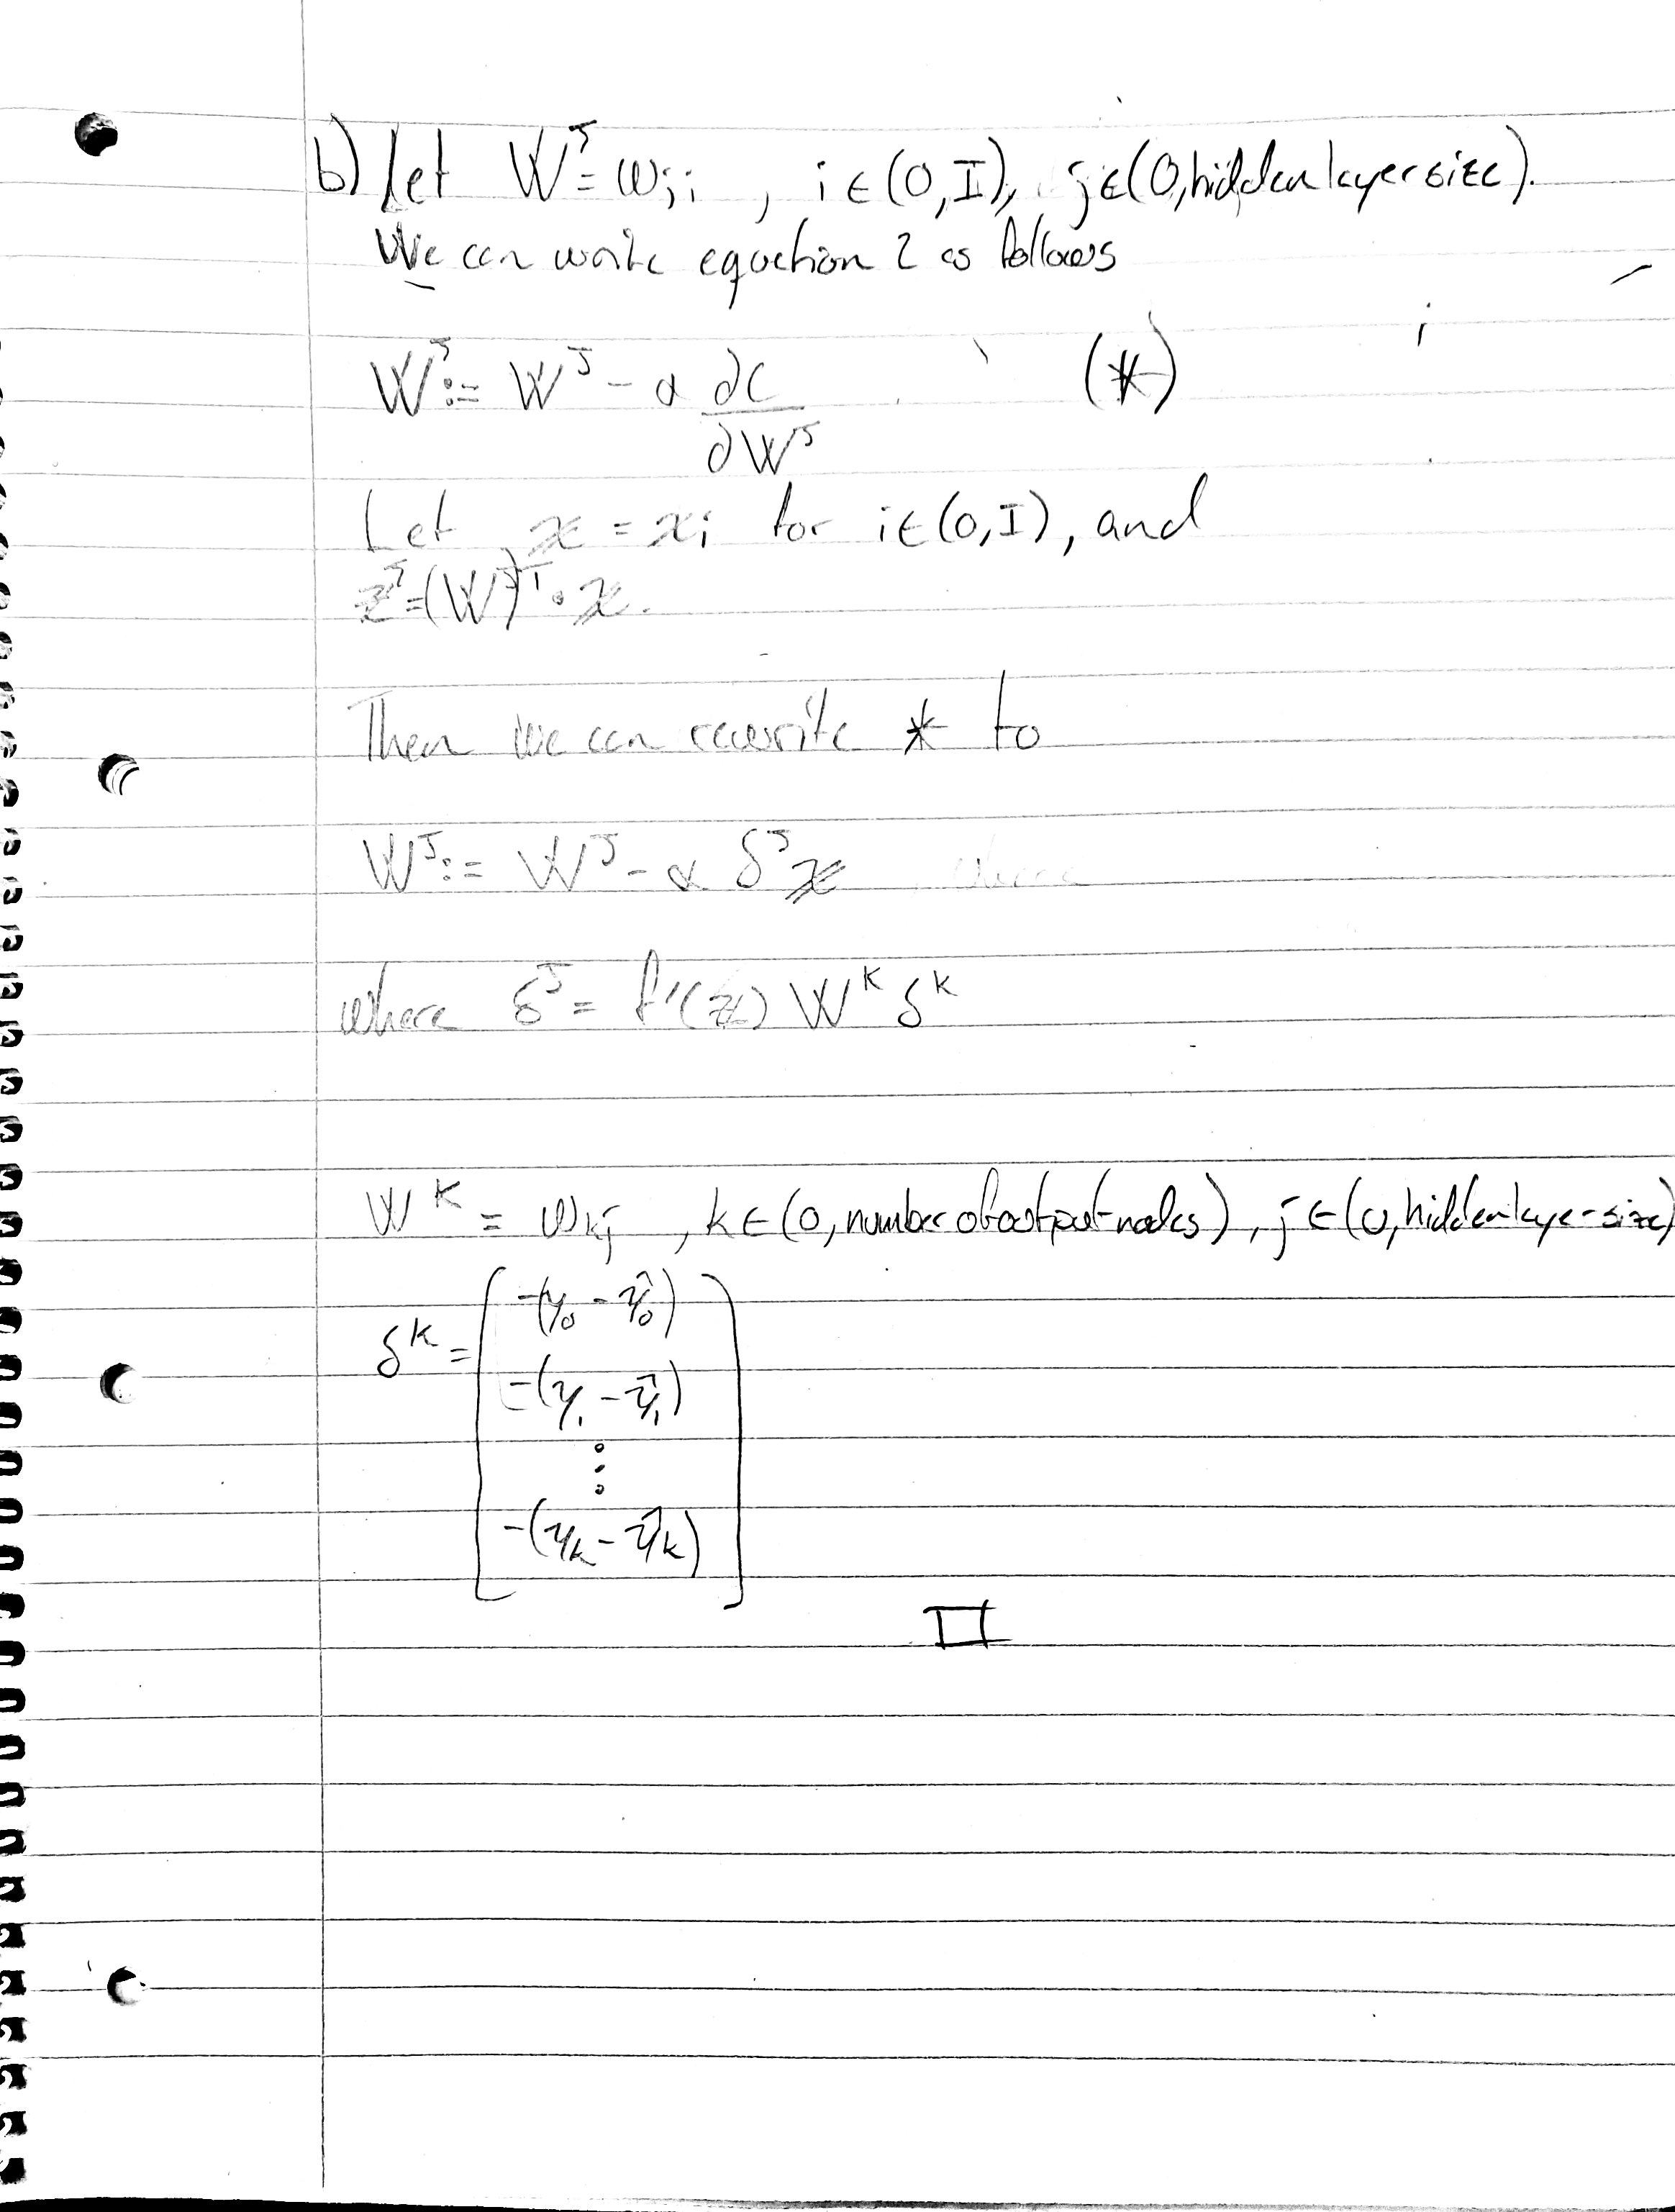 b) Let W^J = w_ji , i ∈ (0, I), j ∈ (0, hidden layer size).
We can write equation 2 as follows
W^J := W^J - α ∂C/∂W^J (*)
Let x = x_i for i ∈ (0, I), and
z^J = (W^J)^T · x.
Then we can rewrite * to
W^J := W^J - α δ^J x where
where δ^J = f'(z) W^K δ^K
W^K = w_kj , k ∈ (0, number of output nodes), j ∈ (0, hidden layer size)
δ^K = [ -(y_0 - ŷ_0)
-(y_1 - ŷ_1)
⋮
-(y_k - ŷ_k) ]
□